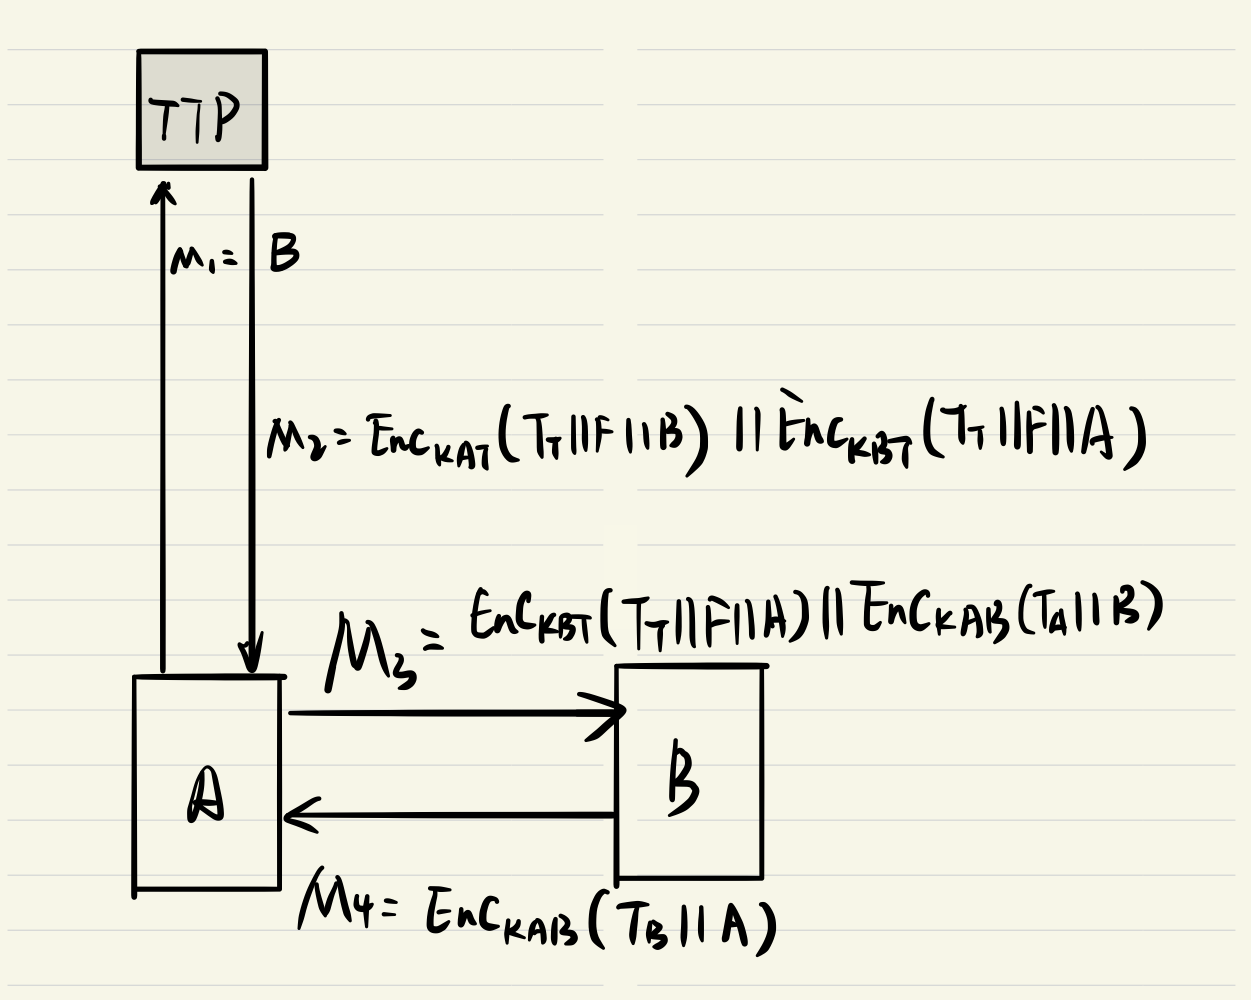 TTP
M₁ = B
M₂ = Enc_KAT (T_T || F || B) || Enc_KBT (T_T || F || A)
M₃ = Enc_KBT (T_T || F || A) || Enc_KAB (T_A || B)
A
B
M₄ = Enc_KAB (T_B || A)